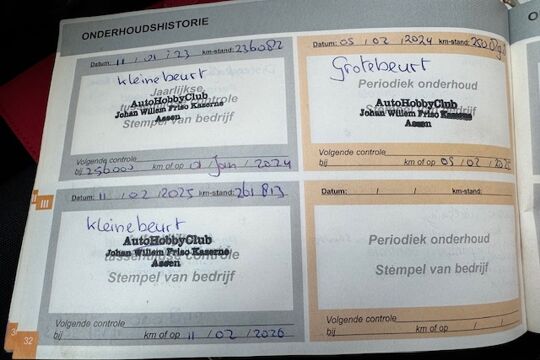 ONDERHOUDSHISTORIE
Datum: 11 / 01 / 23 km-stand: 236082
kleine beurt
Jaarlijkse
AutoHobbyClub
Johan Willem Friso Kazerne
Assen
Stempel van bedrijf
Volgende controle
bij 256000 km of op 01 / Jan / 2024
Datum: 05 / 02 / 2024 km-stand:
Grote beurt
Periodiek onderhoud
AutoHobbyClub
Johan Willem Friso Kazerne
Assen
Stempel van bedrijf
Volgende controle
bij km of op 05 / 02 / 2025
III
Datum: 11 / 02 / 2025 km-stand: 261813
kleine beurt
AutoHobbyClub
Johan Willem Friso Kazerne
tussentijdse controle
Assen
Stempel van bedrijf
Volgende controle
bij km of op 11 / 02 / 2026
Datum: / / km-stand:
Periodiek onderhoud
Stempel van bedrijf
Volgende controle
bij km of op / /
32